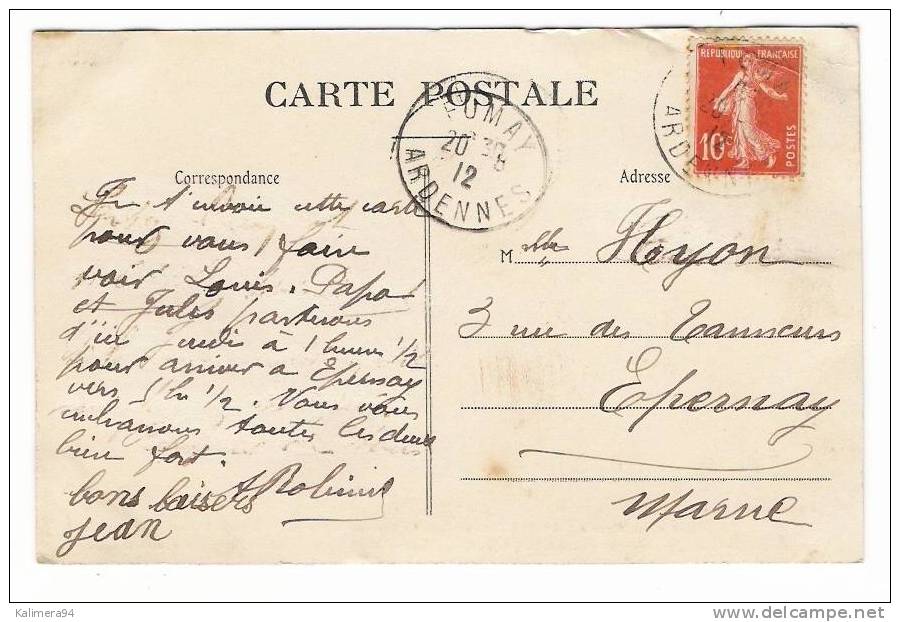 CARTE POSTALE
REPUBLIQUE FRANÇAISE
10c
POSTES
FUMAY
20
12
ARDENNES
ARDENN
Correspondance
Adresse
Je t'envoie cette carte
pour vous faire
voir Louis. Papa
et Jules partirons
d'ici jeudi à 1 heure 1/2
pour arriver a Epernay
vers 5 h 1/2. Nous vous
embrassons toutes les deux
bien fort.
bons baisers
Jean
M elle Hyon
3 rue des Tanneurs
Epernay
Marne
Kalimera94
www.delcampe.net